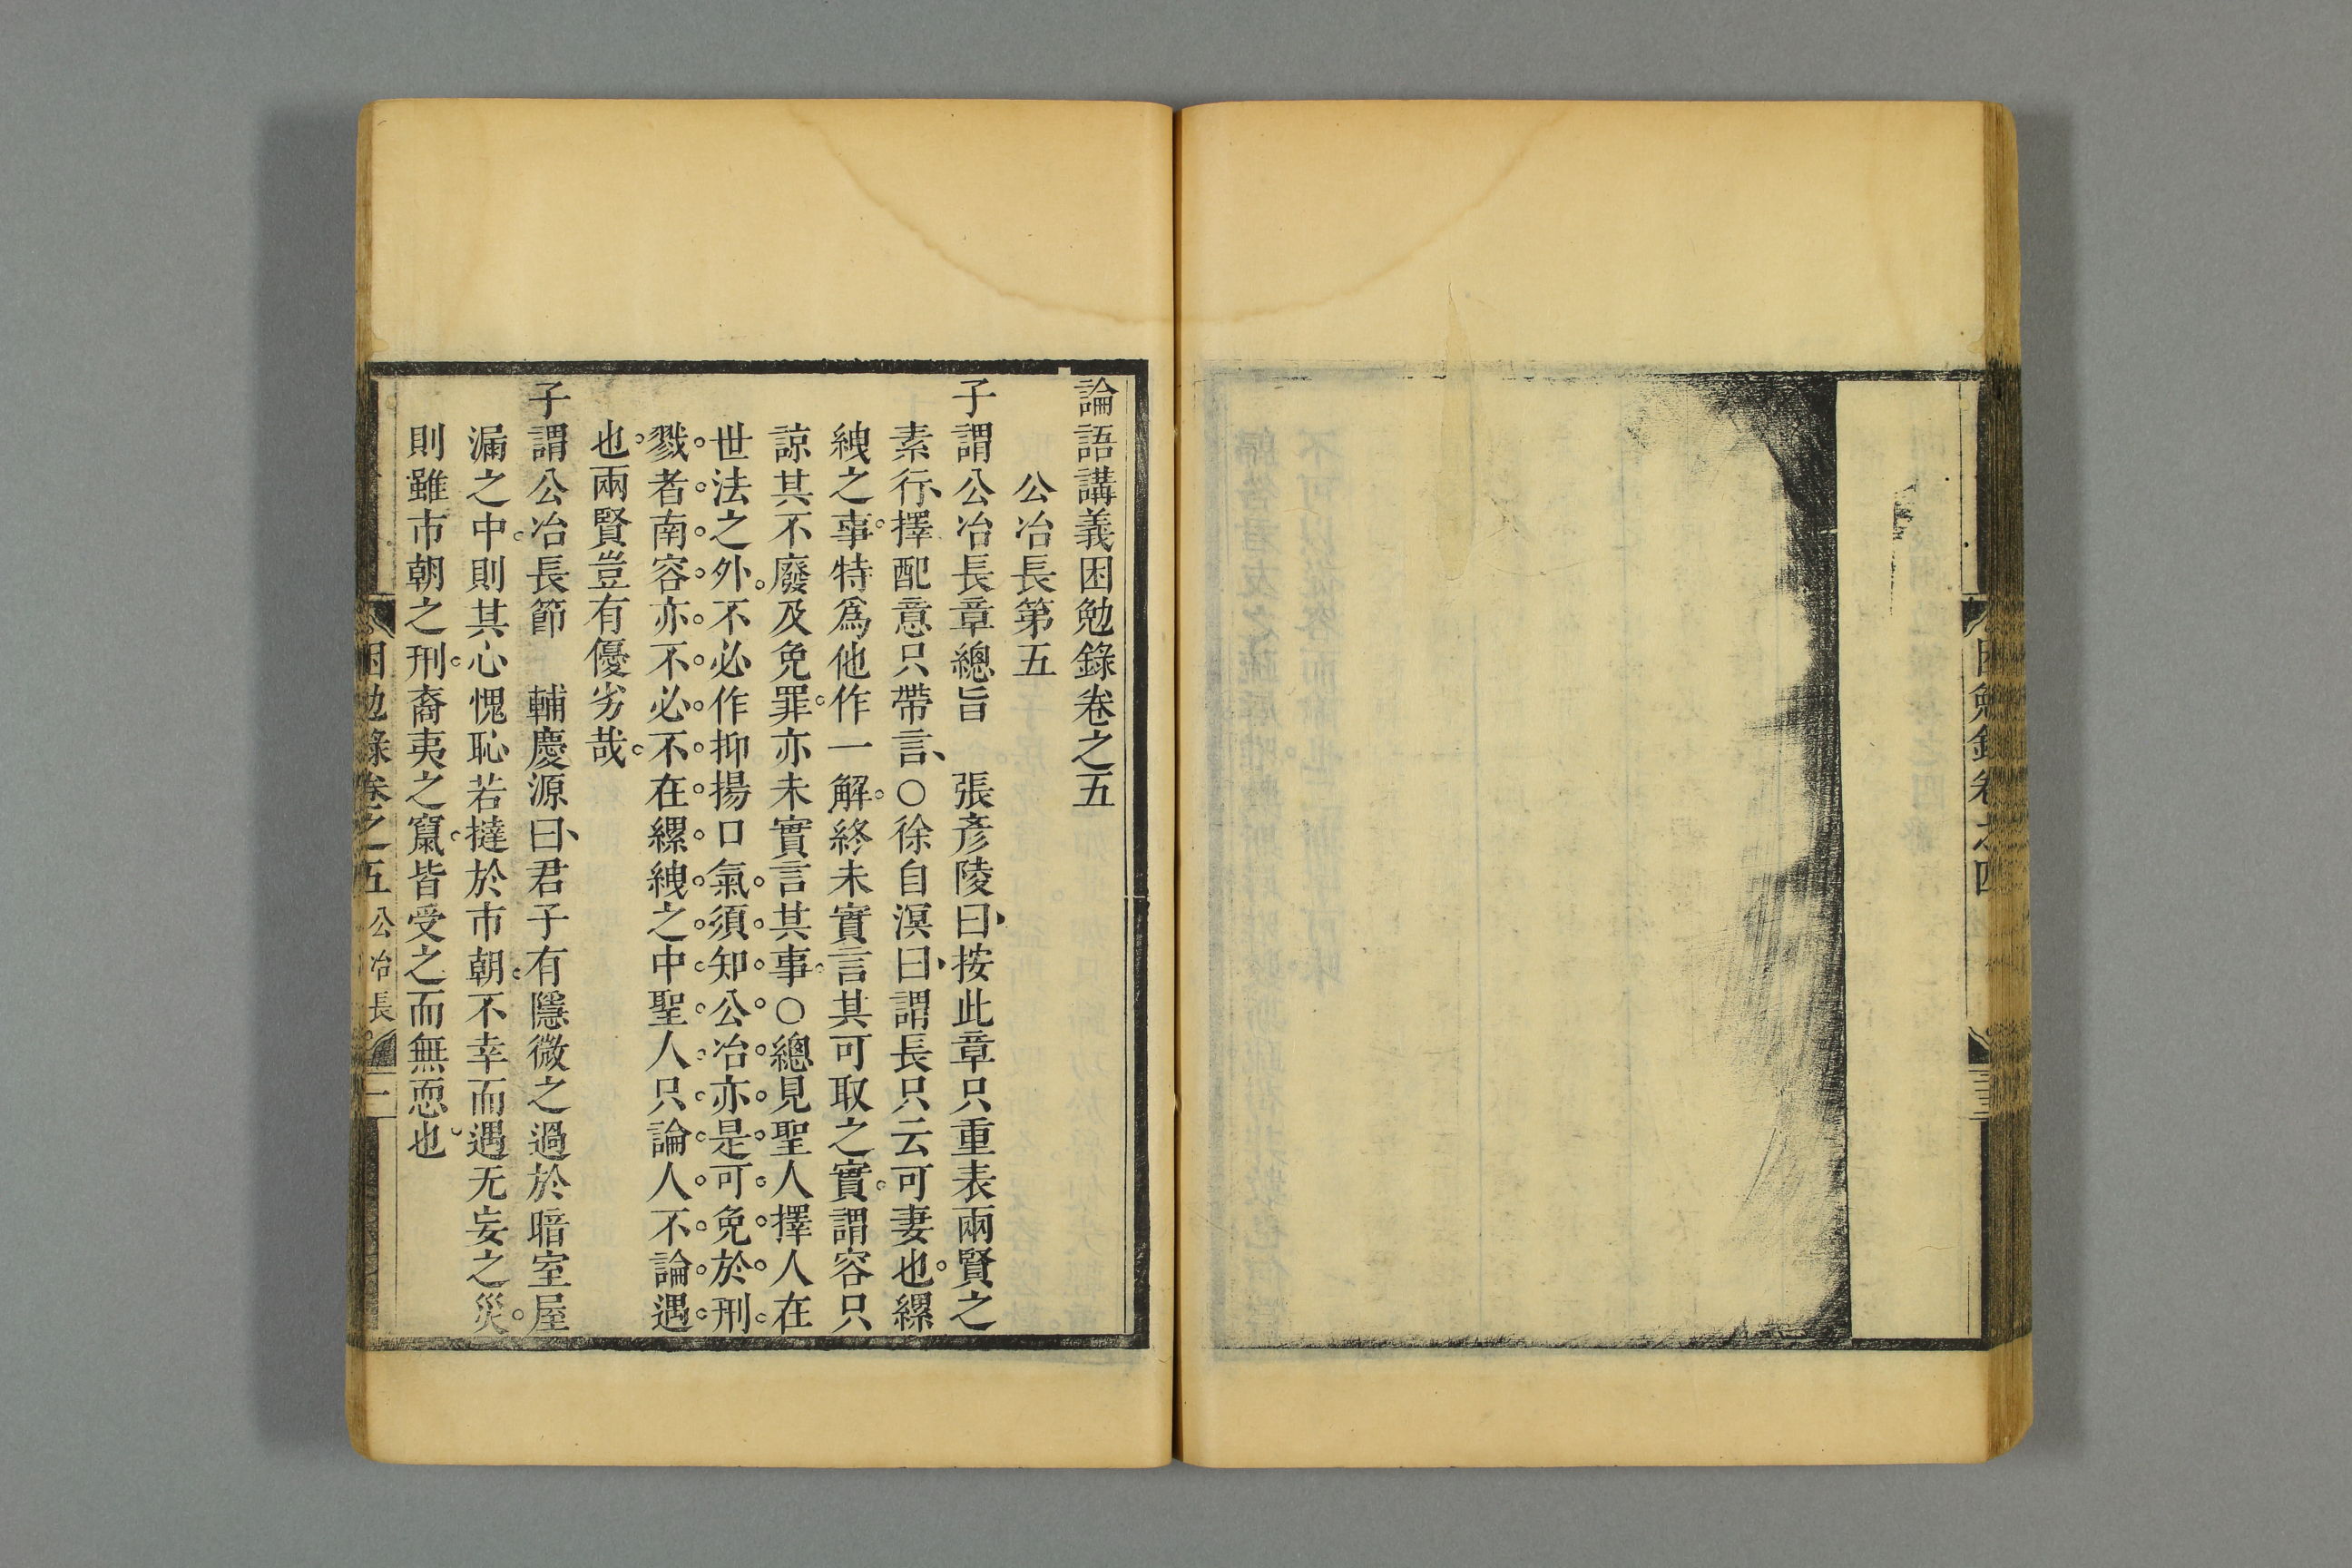 困勉錄卷之四
論語講義困勉錄卷之五
公冶長第五
子謂公冶長章總旨　張彥陵曰、按此章只重表兩賢之
素行、擇配意只帶言、○徐自溟曰、謂長只云可妻也。縲
絏之事。特爲他作一解。終未實言其可取之實。謂容只
諒其不廢及免罪。亦未實言其事。○總見聖人擇人在
世法之外。不必作抑揚口氣。須知公冶亦是可免於刑
戮者。南容亦不必不在縲絏之中。聖人只論人不論遇
也。兩賢豈有優劣哉。
子謂公冶長節　輔慶源曰、君子有隱微之過於暗室屋
漏之中。則其心愧恥若撻於市朝。不幸而遇无妄之災。
則雖市朝之刑。裔夷之竄。皆受之而無恧也。
困勉錄卷之五　公冶長　一